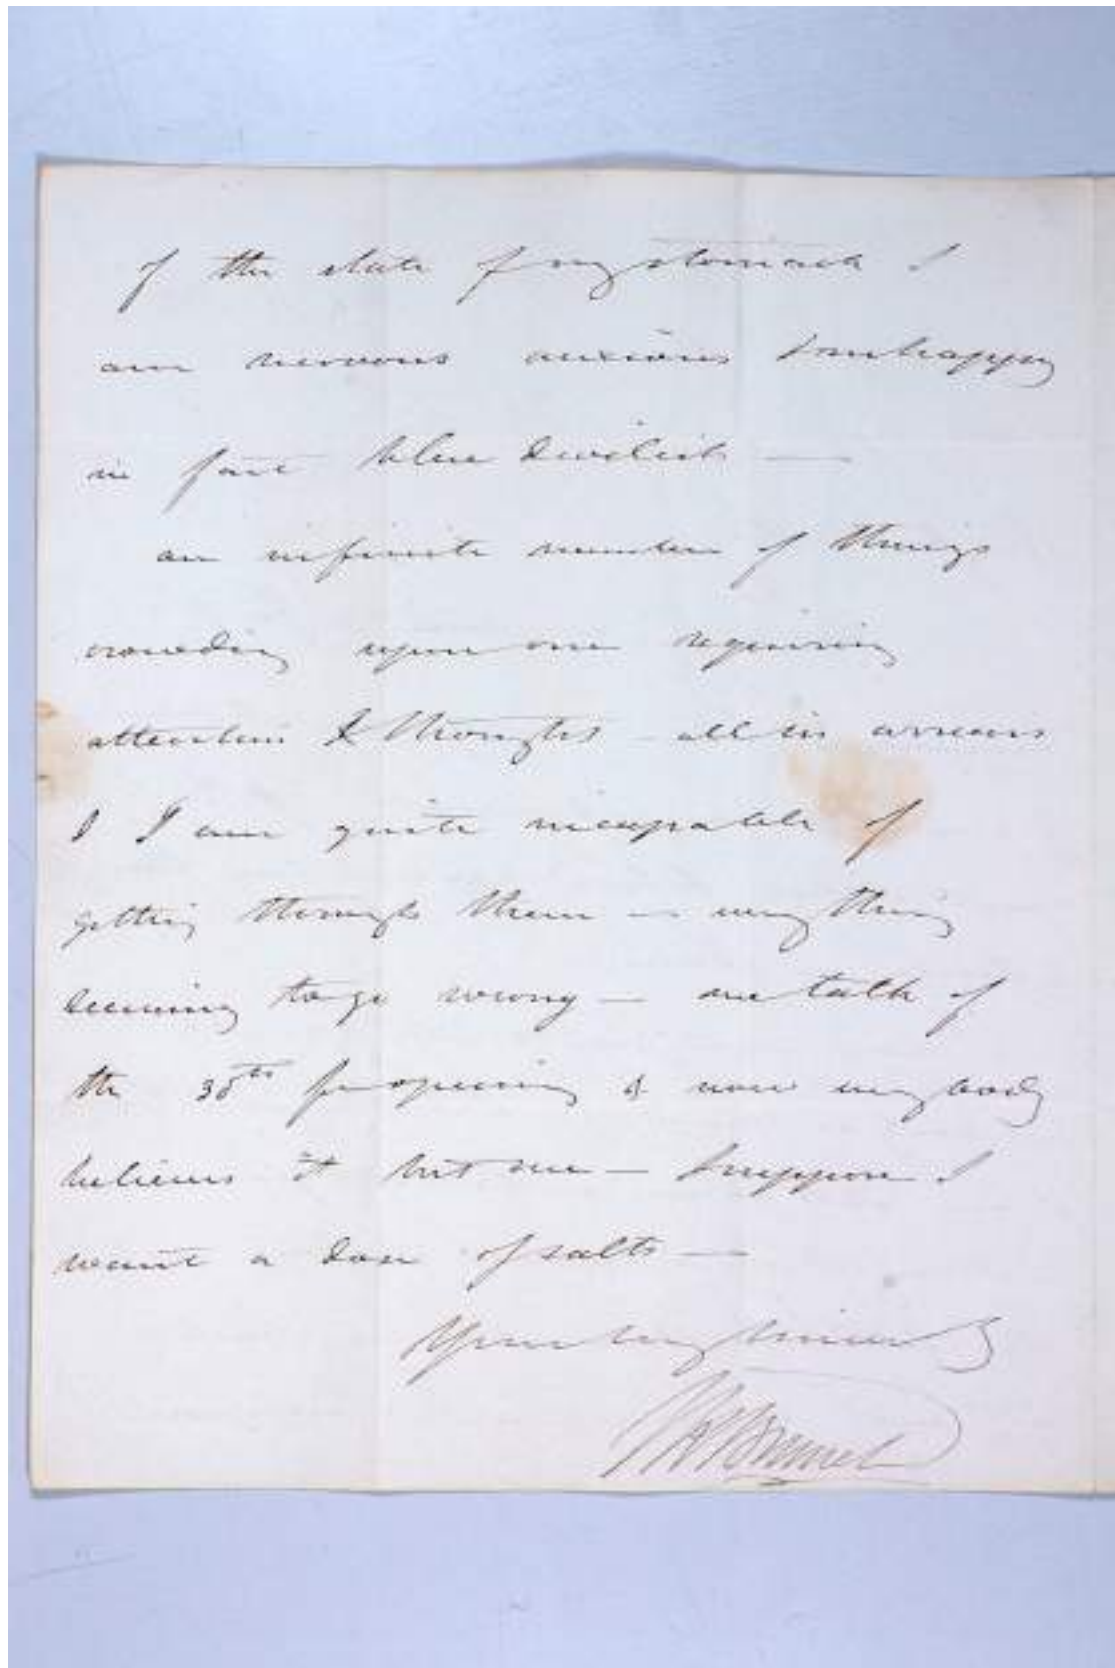 of the state of my stomach I
am nervous anxious & unhappy
in fact blue devilish —
an infinite number of things
crowding upon me requiring
attention & thought – all in arrears
& I am quite incapable of
getting through them – everything
seeming to go wrong — we talk of
the 30th for opening & now everybody
believes it but me — I suppose I
want a dose of salts —
Yours very sincerely
I K Brunel